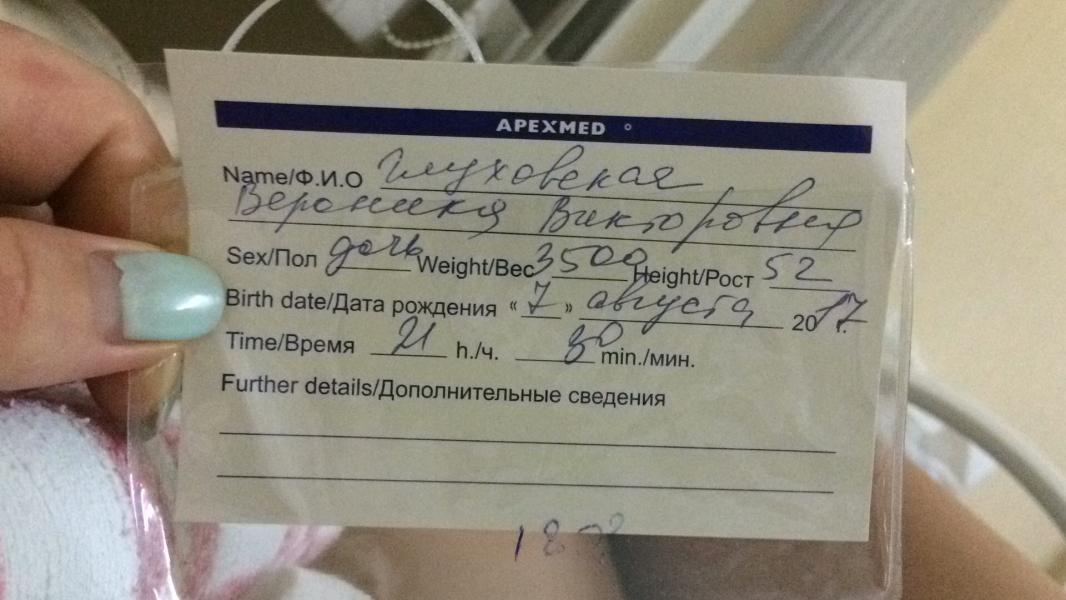 APEXMED
Name/Ф.И.О Глуховская
Вероника Викторовна
Sex/Пол дочь Weight/Вес 3500 Height/Рост 52
Birth date/Дата рождения «7» августа 2017.
Time/Время 21 h./ч. 30 min./мин.
Further details/Дополнительные сведения